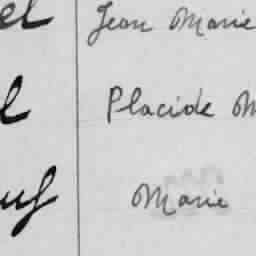 el Jean Marie
l Placide M
uf Marie